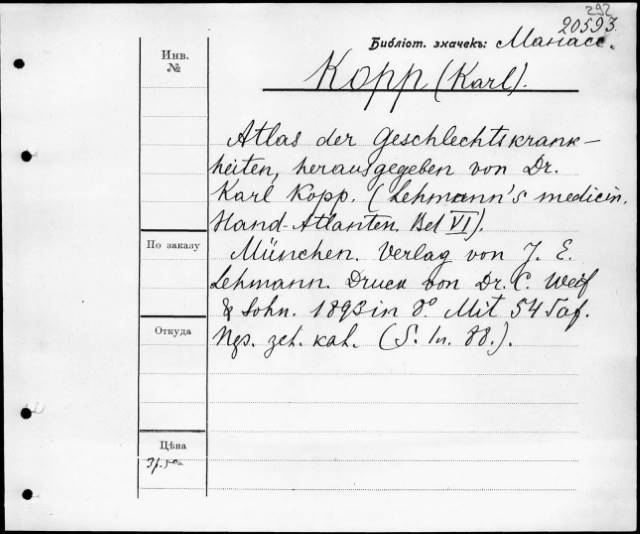 292
20593.
Библіот. значекъ: Манасс.
Инв.
№
Kopp (Karl).
Atlas der Geschlechtskrank-
heiten, herausgegeben von Dr.
Karl Kopp. (Lehmann's medicin.
Hand-Atlanten. Bd VI).
По заказу
München. Verlag von J. E.
Lehmann. Druck von Dr. C.
& Sohn. 1893 in 8°. Mit 54 Taf.
Откуда
(S. In. 88.).
Цѣна